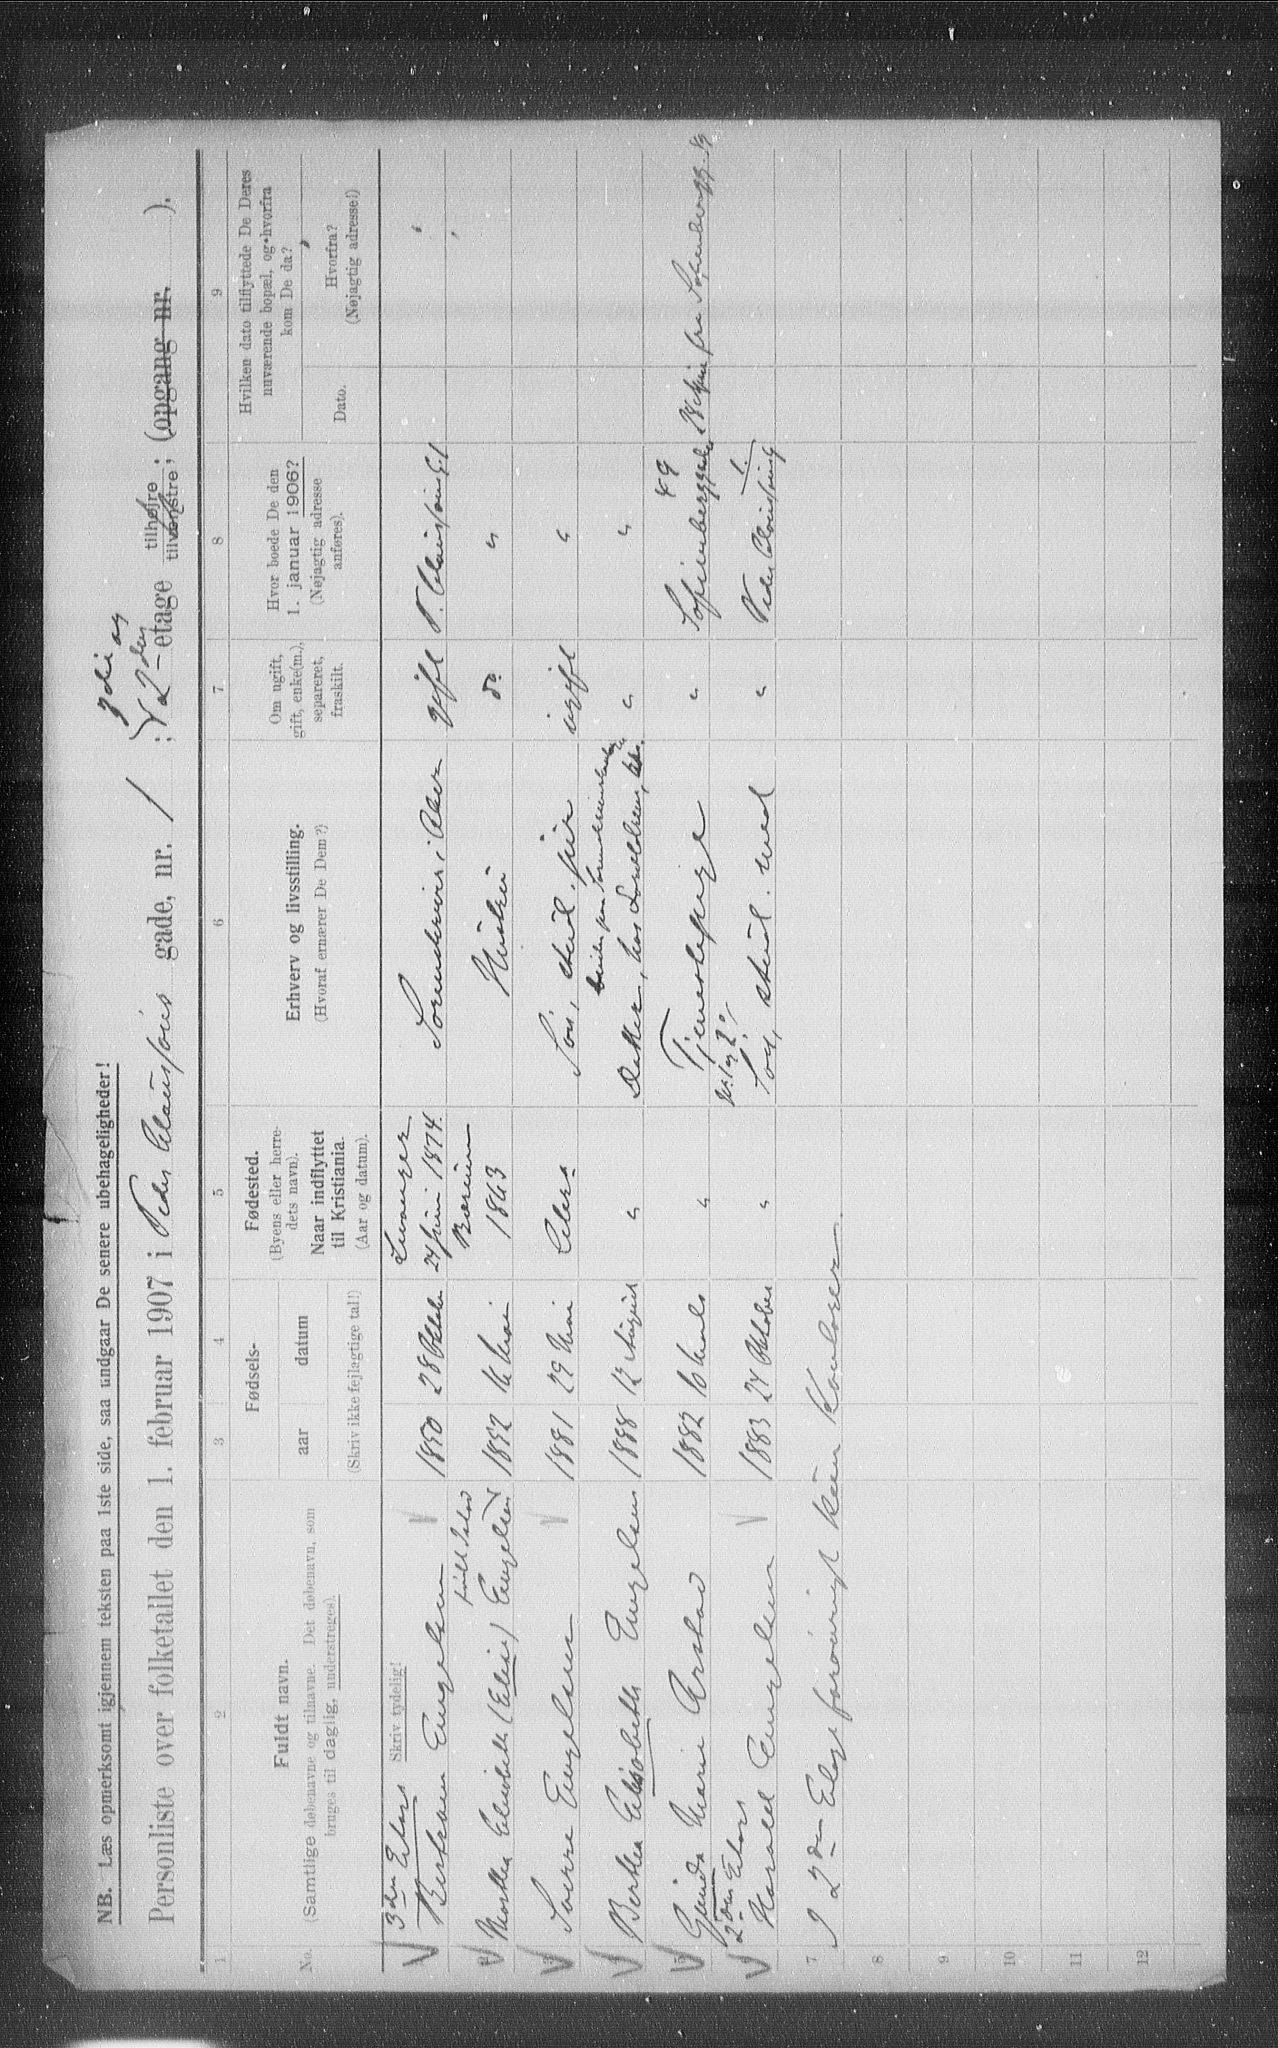 NB. Læs opmerksomt igjennem teksten paa 1ste side, saa undgaar De senere ubehageligheder!
Personliste over folketallet den 1. februar 1907 i Peder Claussøns gade, nr. 1; 3die og 2den etage tilhøjre tilvenstre; (opgang nr. ).
1 2 3 4 5 6 7 8 9
No.
Fuldt navn.
(Samtlige døbenavne og tilnavne. Det døbenavn, som
bruges til daglig, understreges).
Fødsels-
aar datum
(Skriv ikke fejlagtige tal!)
Fødested.
(Byens eller herre-
dets navn).
Naar indflyttet
til Kristiania.
(Aar og datum).
Erhverv og livsstilling.
(Hvoraf ernærer De Dem?)
Om ugift,
gift, enke(m.),
separeret,
fraskilt.
Hvor boede De den
1. januar 1906?
(Nøjagtig adresse
anføres).
Hvilken dato tilflyttede De Deres
nuværende bopæl, og hvorfra
kom De da?
Dato.
Hvorfra?
(Nøjagtig adresse!)
Skriv tydelig!
3den Etage
Engelsen 1850 28 Oktober 24 Juni 1874. i Aker gift P. Claussøns g 1
født
Elisabeth (Elise) Engelsen 1852 16 Mai Bærum 1863 Hustru do "
Sverre Engelsen 1881 29 Mai Søn, stud. ugift "
Berthea Elisabeth Engelsen 1888 12 August " Datter, hos " "
Marie 1882 16 " Tjenestepige " Sofienberggade 49 fra Sofienbergg.
2den Etage
Harald Engelsen 1883 24 Oktober " Søn, stud. med " Peder Claussøns g 1.
7 I 2den Etage forøvrigt kun Kontorer.
8
9
10
11
12